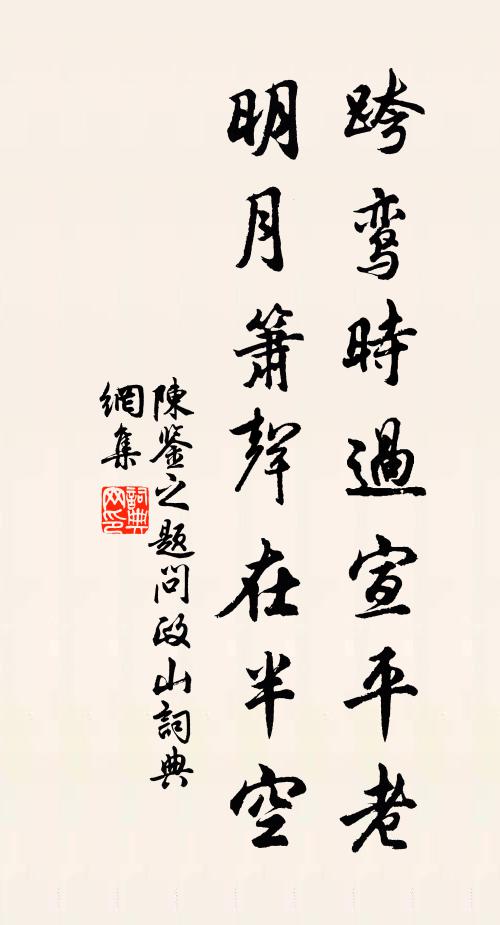 跨鸾時過宣平老
明月簫聲在半空
陳鉴之題問政山詞典
網集
詞典网印